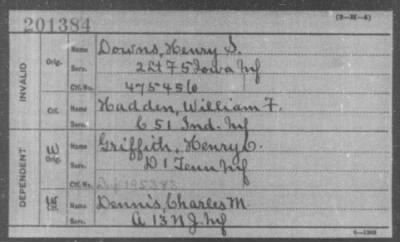 201384 (3-M-4)
INVALID Orig. Name Downs, Henry S.
Serv. 2 Lt 75 Iowa Inf
Ctf. No. 475456
Ctf. Name Hadden, William F.
Serv. C 51 Ind. Inf
DEPENDENT W Orig. Name Griffith, Henry C.
Serv. D 1 Tenn Inf
Ctf. No. 195383
Ctf. Name Dennis, Charles M.
Serv. A 13 N J. Inf